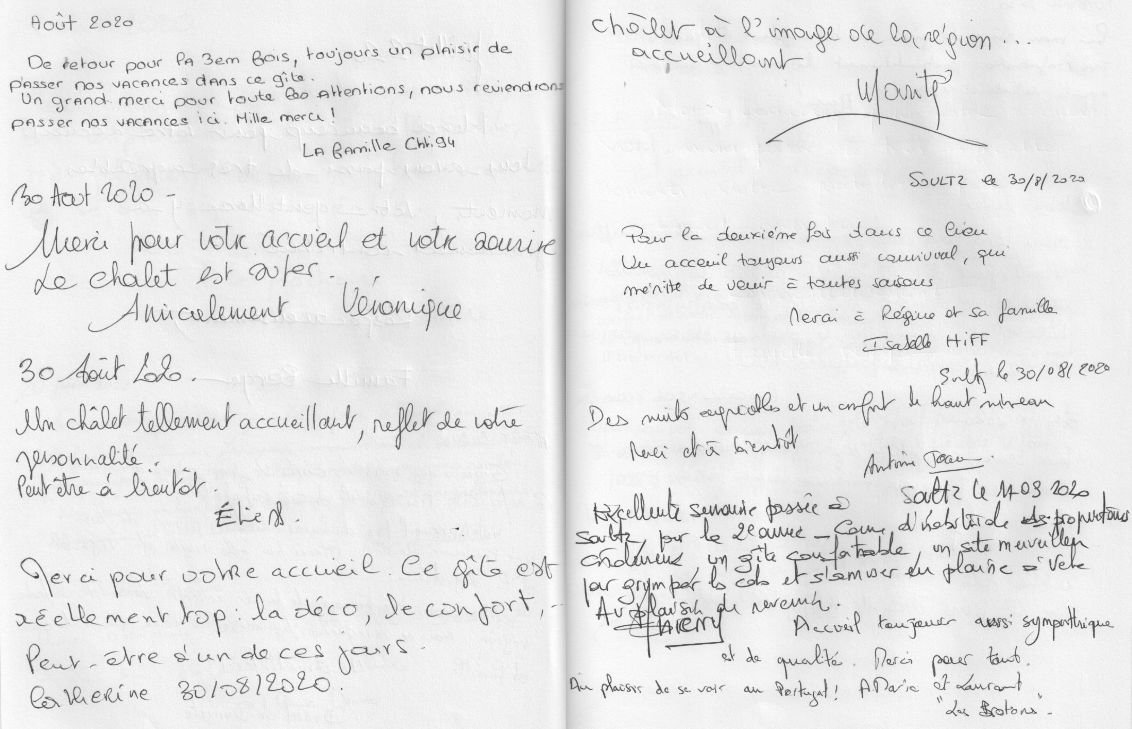 Août 2020
De retour pour la 3em fois, toujours un plaisir de
passer nos vacances dans ce gîte.
Un grand merci pour toute les attentions, nous reviendrons
passer nos vacances ici. Mille merci !
La famille Chti 94
30 Aout 2020 -
Merci pour votre accueil et votre sourire
Le chalet est super.
Amicalement Véronique
30 Août 2020.
Un châlet tellement accueillant, reflet de votre
personnalité.
Peut être à bientôt.
Merci pour votre accueil. Ce gîte est
réellement top : la déco, le confort, ...
Peut-être à un de ces jours.
Catherine 30/08/2020.
châlet à l'image de la région...
accueillant
Soultz le 30/8/2020
Pour la deuxième fois dans ce lieu
Un acceuil toujours aussi convivial, qui
mérite de venir à toutes saisons
Merci à Régine et sa famille
Isabelle HIFF
Sultz le 30/08/2020
Des nuits agréables et un confort de haut niveau
Merci et à bientôt
Antoine
Soultz le 2020
Excellente semaine passée à
Soultz, pour la 2e année - Comme d'habitude des propriétaires
chaleureux, un gîte confortable, un site merveilleux
pour grimper les cols et s'amuser en plaine à vélo
Au plaisir de revenir.
Thierry
Accueil toujours aussi sympathique
et de qualité. Merci pour tout.
Au plaisir de se voir au Portugal ! A Marie et Laurent
"Les Bretons.